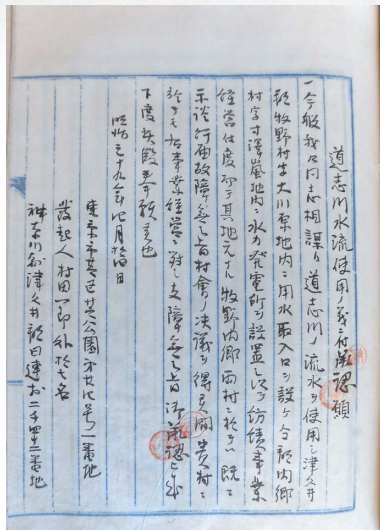 道志川水流使用ノ義ニ付承認願
一今般我々同志相謀リ道志川ノ流水ヲ使用シ津久井
郡牧野村字大川原地内ニ用水取入口ヲ設ケ全郡内郷
村字寸澤嵐地内ニ水力発電所ヲ設置シ以テ紡績事業
経営仕度
其地元タル牧野内郷両村ニ於テハ既ニ
示談行届故障無之旨村會ノ決議ヲ得
貴村ニ
於テモ右事業経営ニ対シ支障無之旨御承認
下度
明治三十九年
月
日
東京市芝区芝公園
号
番地
発起人村田一郎外
七名
神奈川県津久井郡日連村二千四
番地